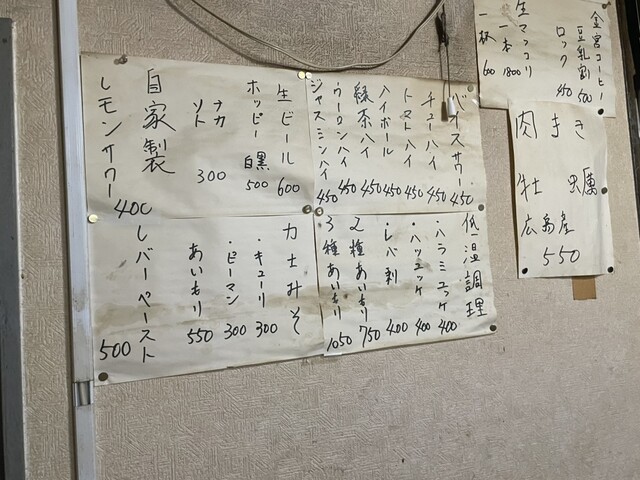 金宮コーヒー
豆乳割 500
ロック 450
生マッコリ
一本 1800
一杯 600
肉まき
牡蠣
広島産
550
バイスサワー 450
チューハイ 450
トマトハイ 450
ハイボール 450
緑茶ハイ 450
ウーロンハイ 450
ジャスミンハイ 450
生ビール 600
ホッピー 白黒 500
ナカ
ソト 300
自家製
レモンサワー 400
低温調理
・ハラミユッケ 400
・ハツユッケ 400
・レバ刺 400
2種あいもり 750
3種あいもり 1050
力士みそ
・キューリ 300
・ピーマン 300
あいもり 550
レバーペースト 500